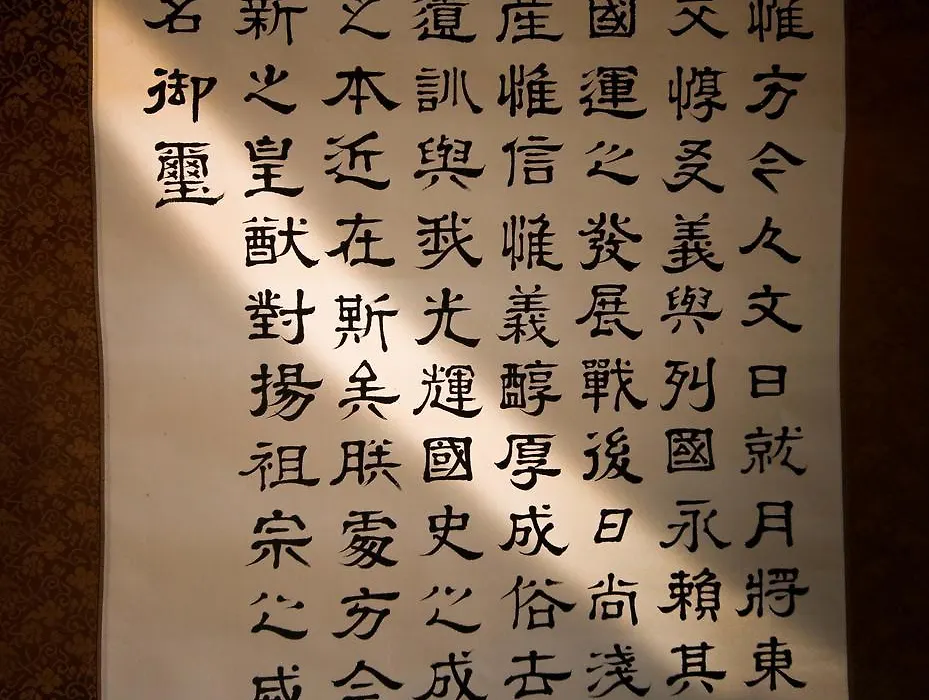 惟方今人文日就月將東
交惇友義與列國永賴其
國運之發展戰後日尚淺
産惟信惟義醇厚成俗去
遺訓與我光輝國史之成
之本近在斯矣朕處方今
新之皇猷對揚祖宗之威
名御璽